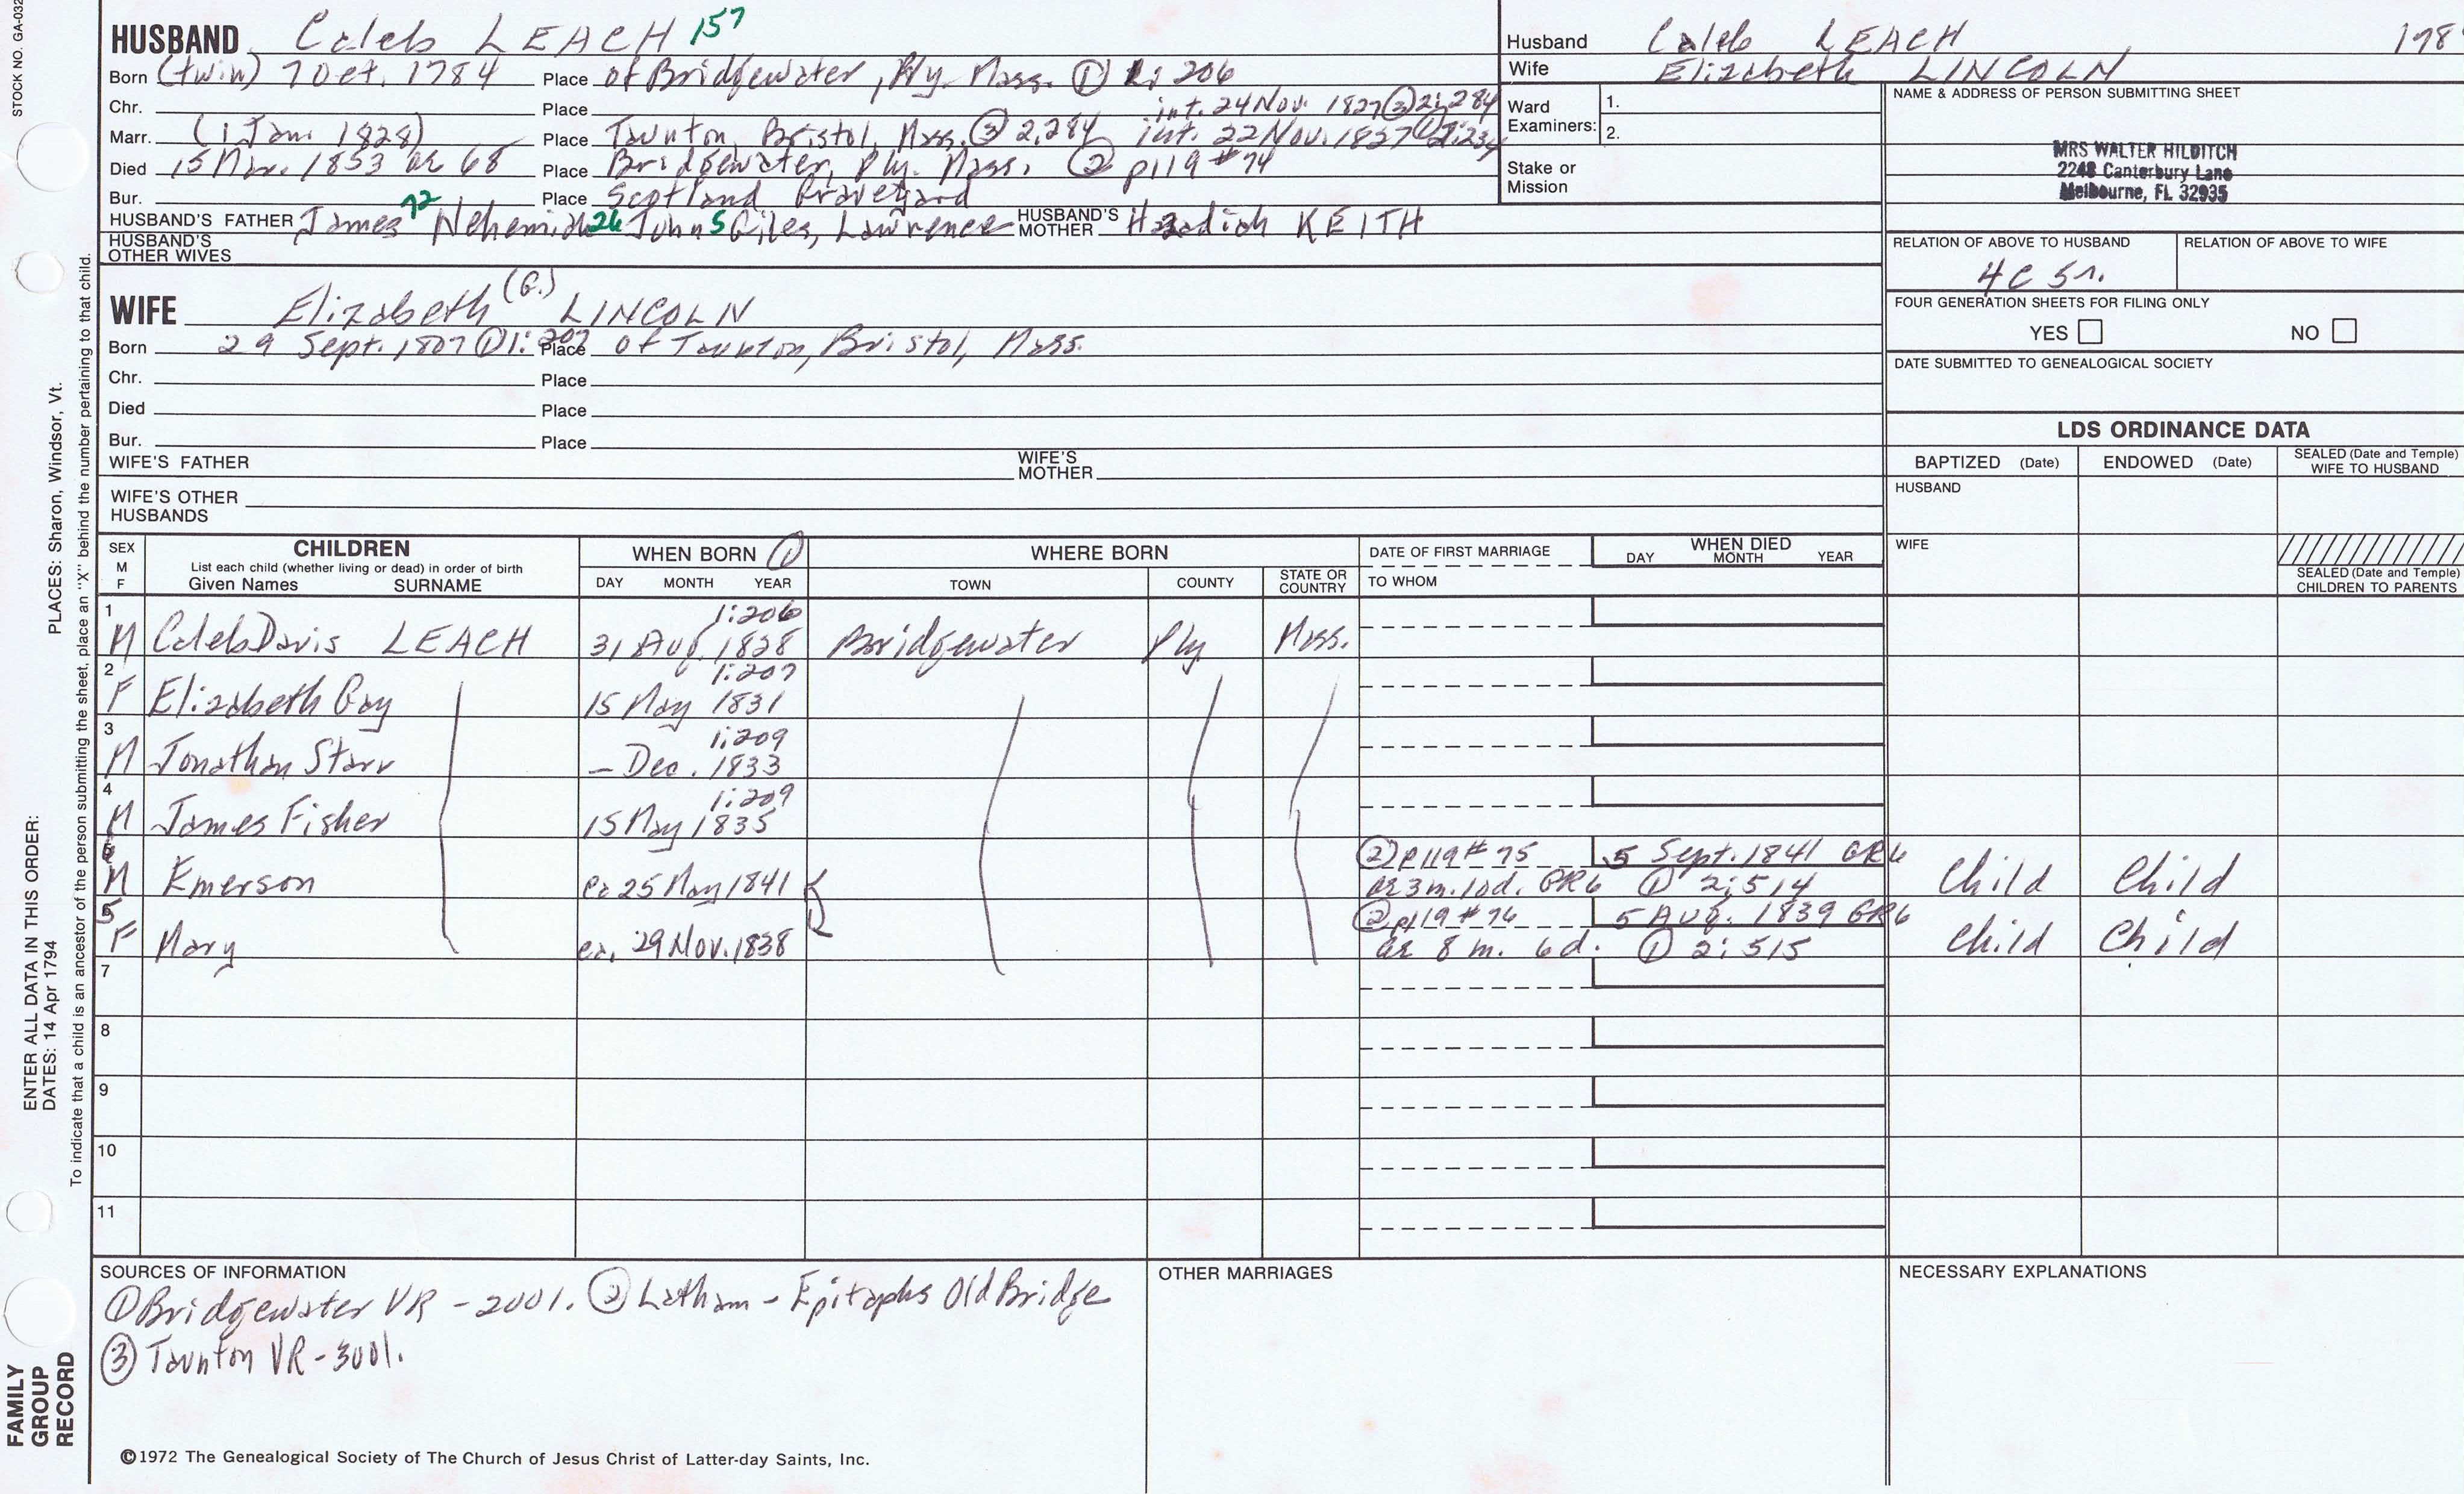 STOCK NO. GA-032
HUSBAND Caleb LEACH 157
Born (twin) 7 Oct. 1784 Place of Bridgewater, Ply. Mass. ① 1: 206
Chr. Place int. 24 Nov. 1827 ③ 2:284
Marr. (1 Jan. 1828) Place Taunton, Bristol, Mass. ③ 2,284 int. 22 Nov. 1827 ① 2:234
Died 15 Mar. 1853 ae 68 Place Bridgewater, Ply. Mass. ② p119 #74
Bur. Place Scotland Graveyard
HUSBAND'S FATHER James 72 Nehemiah 26 John 5 Giles, Lawrence HUSBAND'S MOTHER Hazadiah KEITH
HUSBAND'S OTHER WIVES
Husband Caleb LEACH 178
Wife Elizabeth LINCOLN
Ward Examiners: 1.
2.
Stake or Mission
NAME & ADDRESS OF PERSON SUBMITTING SHEET
MRS WALTER HILDITCH
2248 Canterbury Lane
Melbourne, FL 32935
RELATION OF ABOVE TO HUSBAND RELATION OF ABOVE TO WIFE
4C 5r.
FOUR GENERATION SHEETS FOR FILING ONLY
YES NO
DATE SUBMITTED TO GENEALOGICAL SOCIETY
WIFE Elizabeth (G.) LINCOLN
Born 29 Sept. 1807 ① 1:207 Place of Taunton, Bristol, Mass.
Chr. Place
Died Place
Bur. Place
WIFE'S FATHER WIFE'S MOTHER
WIFE'S OTHER HUSBANDS
LDS ORDINANCE DATA
BAPTIZED (Date) ENDOWED (Date) SEALED (Date and Temple) WIFE TO HUSBAND
HUSBAND
WIFE
SEALED (Date and Temple) CHILDREN TO PARENTS
SEX M F CHILDREN List each child (whether living or dead) in order of birth Given Names SURNAME
WHEN BORN ① DAY MONTH YEAR
WHERE BORN TOWN COUNTY STATE OR COUNTRY
DATE OF FIRST MARRIAGE TO WHOM
WHEN DIED DAY MONTH YEAR
1 1:206
M Caleb Davis LEACH 31 Aug. 1828 Bridgewater Ply Mass.
2 1:207
F Elizabeth Gay 15 May 1831
3 1:209
M Jonathan Starr – Dec. 1833
4 1:209
M James Fisher 15 May 1835
6 ② p119 #75 5 Sept. 1841 GR6
M Emerson ca 25 May 1841 ae 3m. 10d. GR6 ① 2:514 Child Child
5 ② p119 #76 5 Aug. 1839 GR6
F Mary ca. 29 Nov. 1838 ae 8 m. 6d. ① 2:515 Child Child
7
8
9
10
11
SOURCES OF INFORMATION
① Bridgewater VR - 2001. ② Latham - Epitaphs Old Bridge
③ Taunton VR - 3001.
OTHER MARRIAGES
NECESSARY EXPLANATIONS
©1972 The Genealogical Society of The Church of Jesus Christ of Latter-day Saints, Inc.
FAMILY GROUP RECORD
ENTER ALL DATA IN THIS ORDER:
DATES: 14 Apr 1794 PLACES: Sharon, Windsor, Vt.
To indicate that a child is an ancestor of the person submitting the sheet, place an "X" behind the number pertaining to that child.